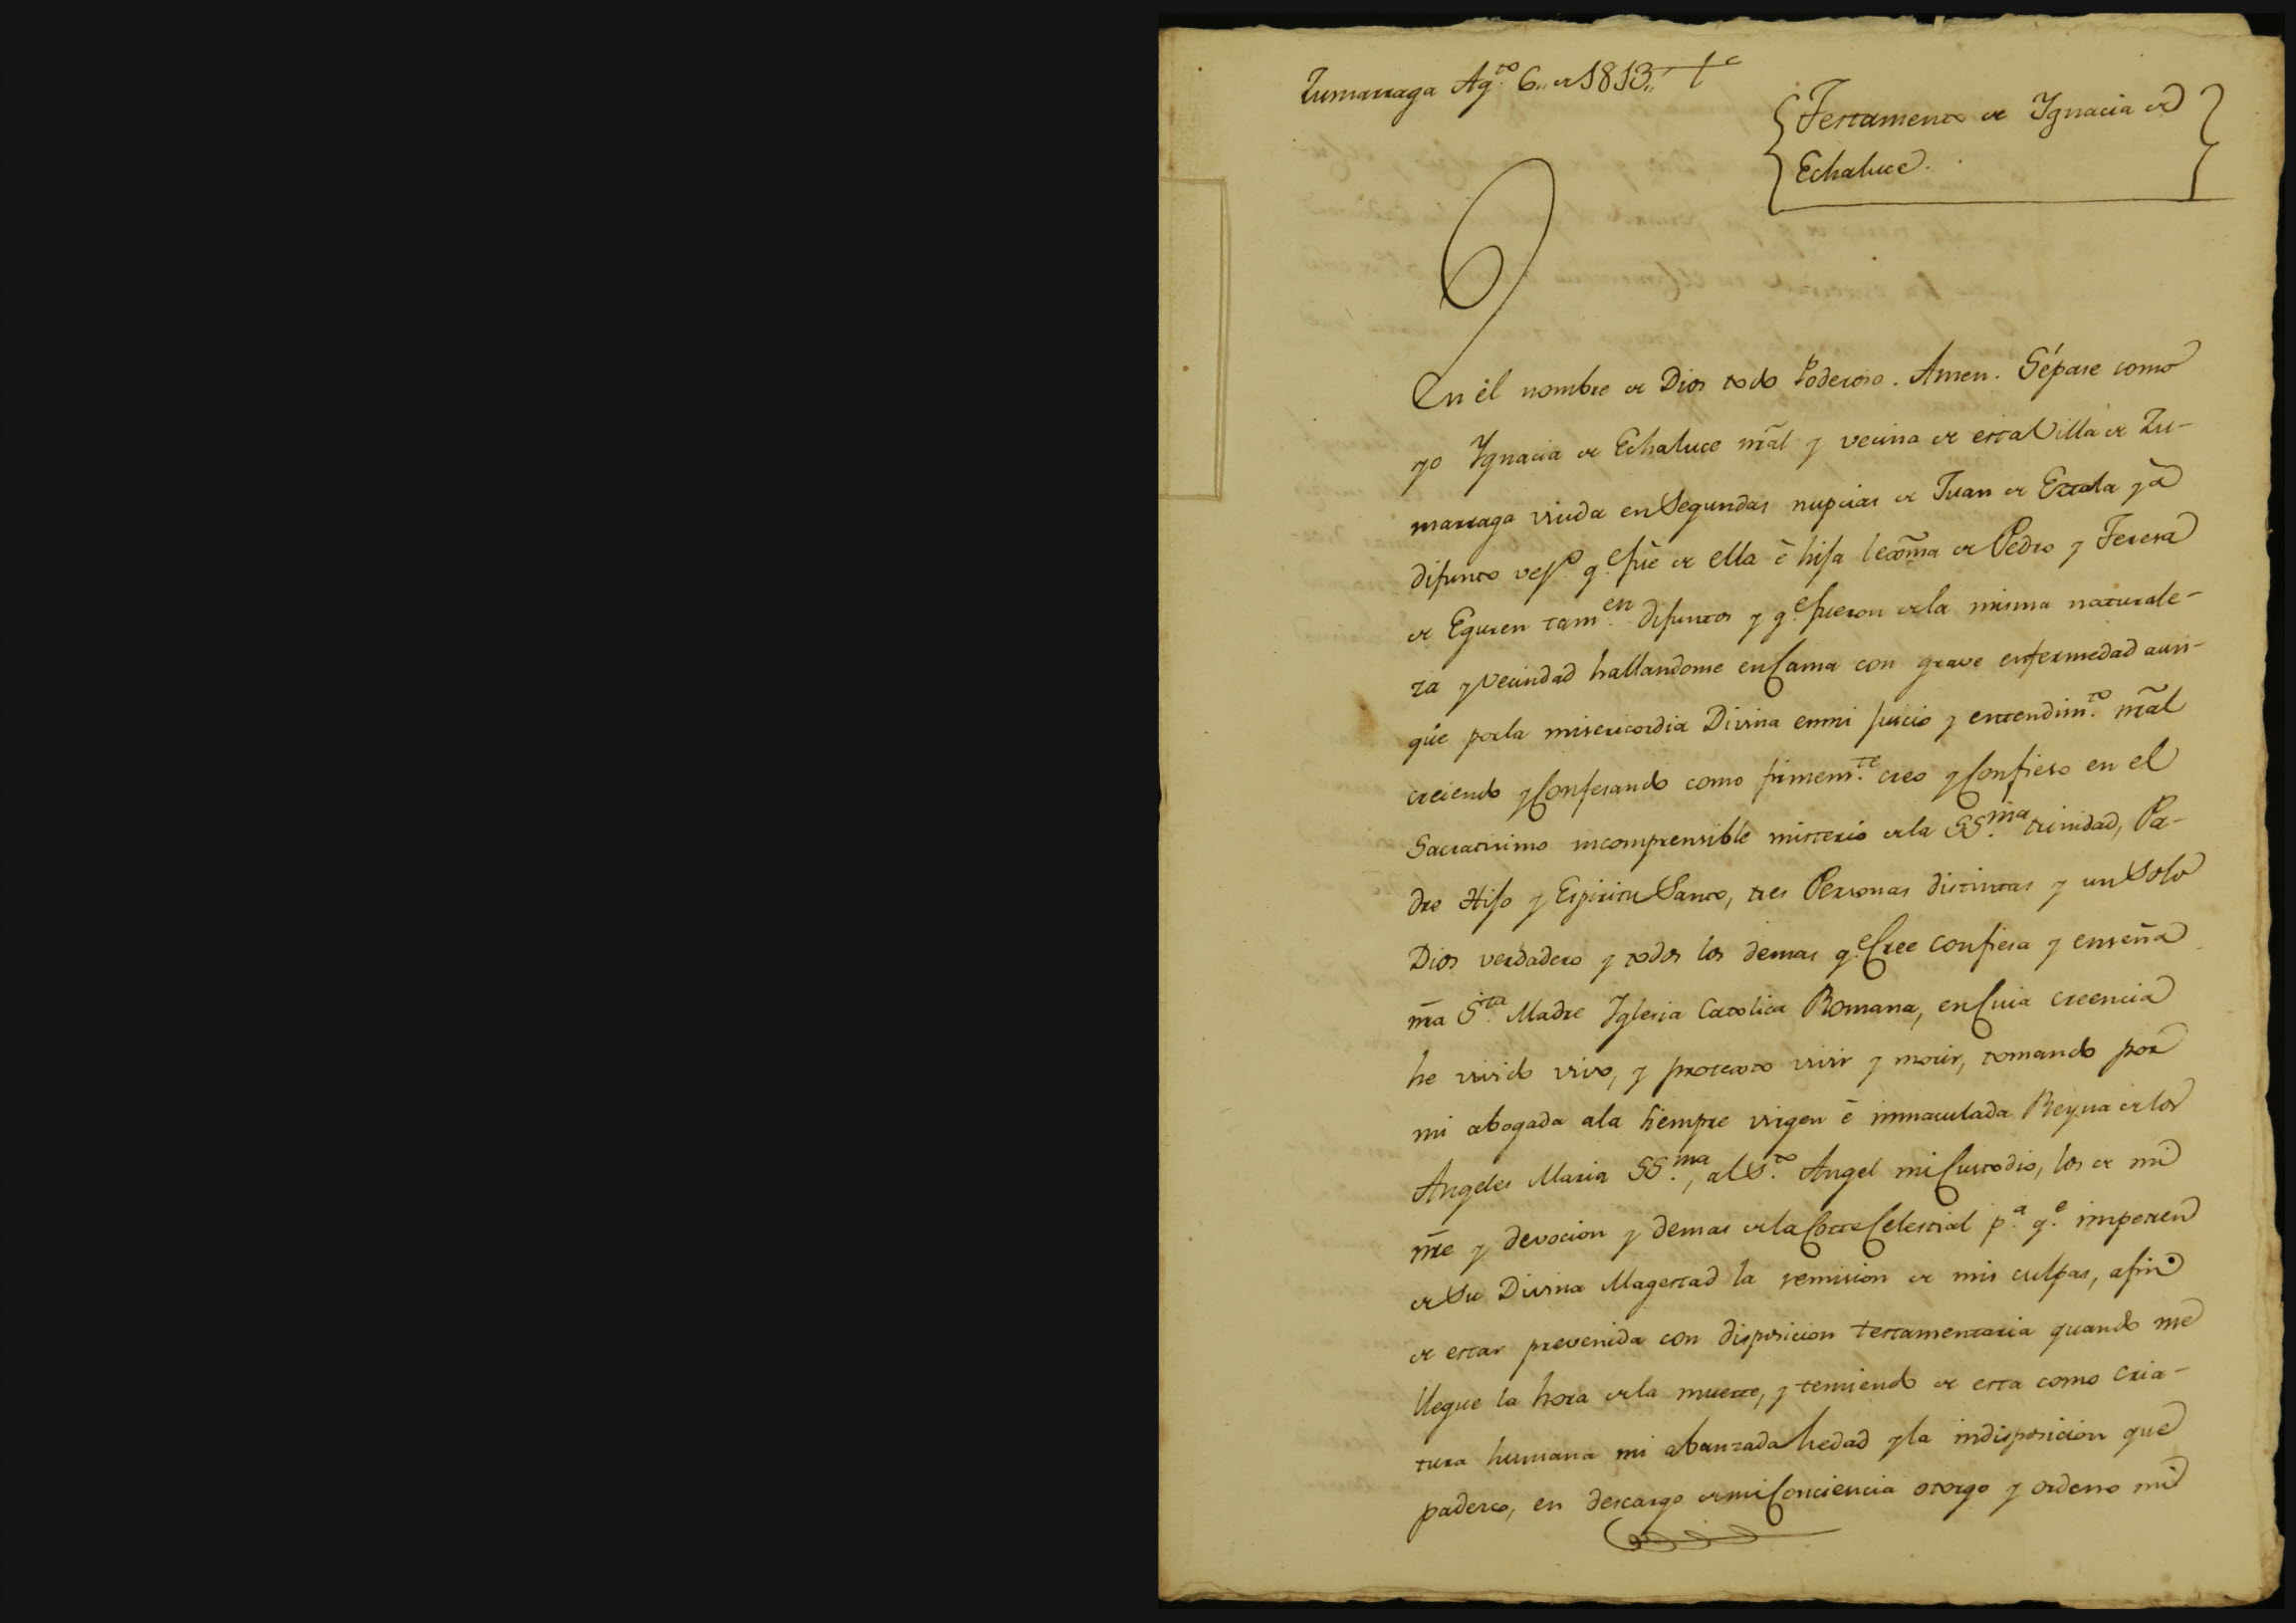 Zumarraga Ag.to 6,, de 1813,,
Testamento de Ygnacia de
Echaluce.
En él nombre de Dios todo Poderoso. Amen. Sépase como
yo Ygnacia de Echaluce nrãl y vecina de esta Villa de Zu-
marraga viuda en Segundas nupcias de Juan de Errata yã
difunto q.e fuè de ella è hija de Pedro y Teresa
de Eguren tam.en difuntos y q.e fueron de la misma naturale-
za y Vecindad hallandome en Cama con grave enfermedad aun-
que por la misericordia Divina en mi juicio y entendim.to nrãl
creiendo y Confesando como firmem.te creo y Confieso en el
Sacratisimo incomprensible misterio de la SS.ma trinidad, Pa-
dre Hijo y Espiritu Santo, tres Personas distintas y un Solo
Dios verdadero y todos los demas q.e Cree confiesa y enseña
nrã S.ta Madre Iglesia Catolica Romana, en Cuia creencia
he vivido vivo, y protexto vivir y morir, tomando por
mi abogada a la siempre virgen è inmaculada Reyna de los
Angeles Maria SS.ma, al S.to Angel mi Custodio, los de mi
nrẽ y devocion y demas de la Corte Celestial p.a q.e impetren
de Su Divina Magestad la remision de mis culpas, a fin
de estar prevenida con disposicion testamentaria quando me
llegue la hora de la muerte, y temiendo de esta como Cria-
tura humana mi abanzada hedad y la indisposicion que
padesco, en descargo de mi Conciencia otorgo y ordeno mi